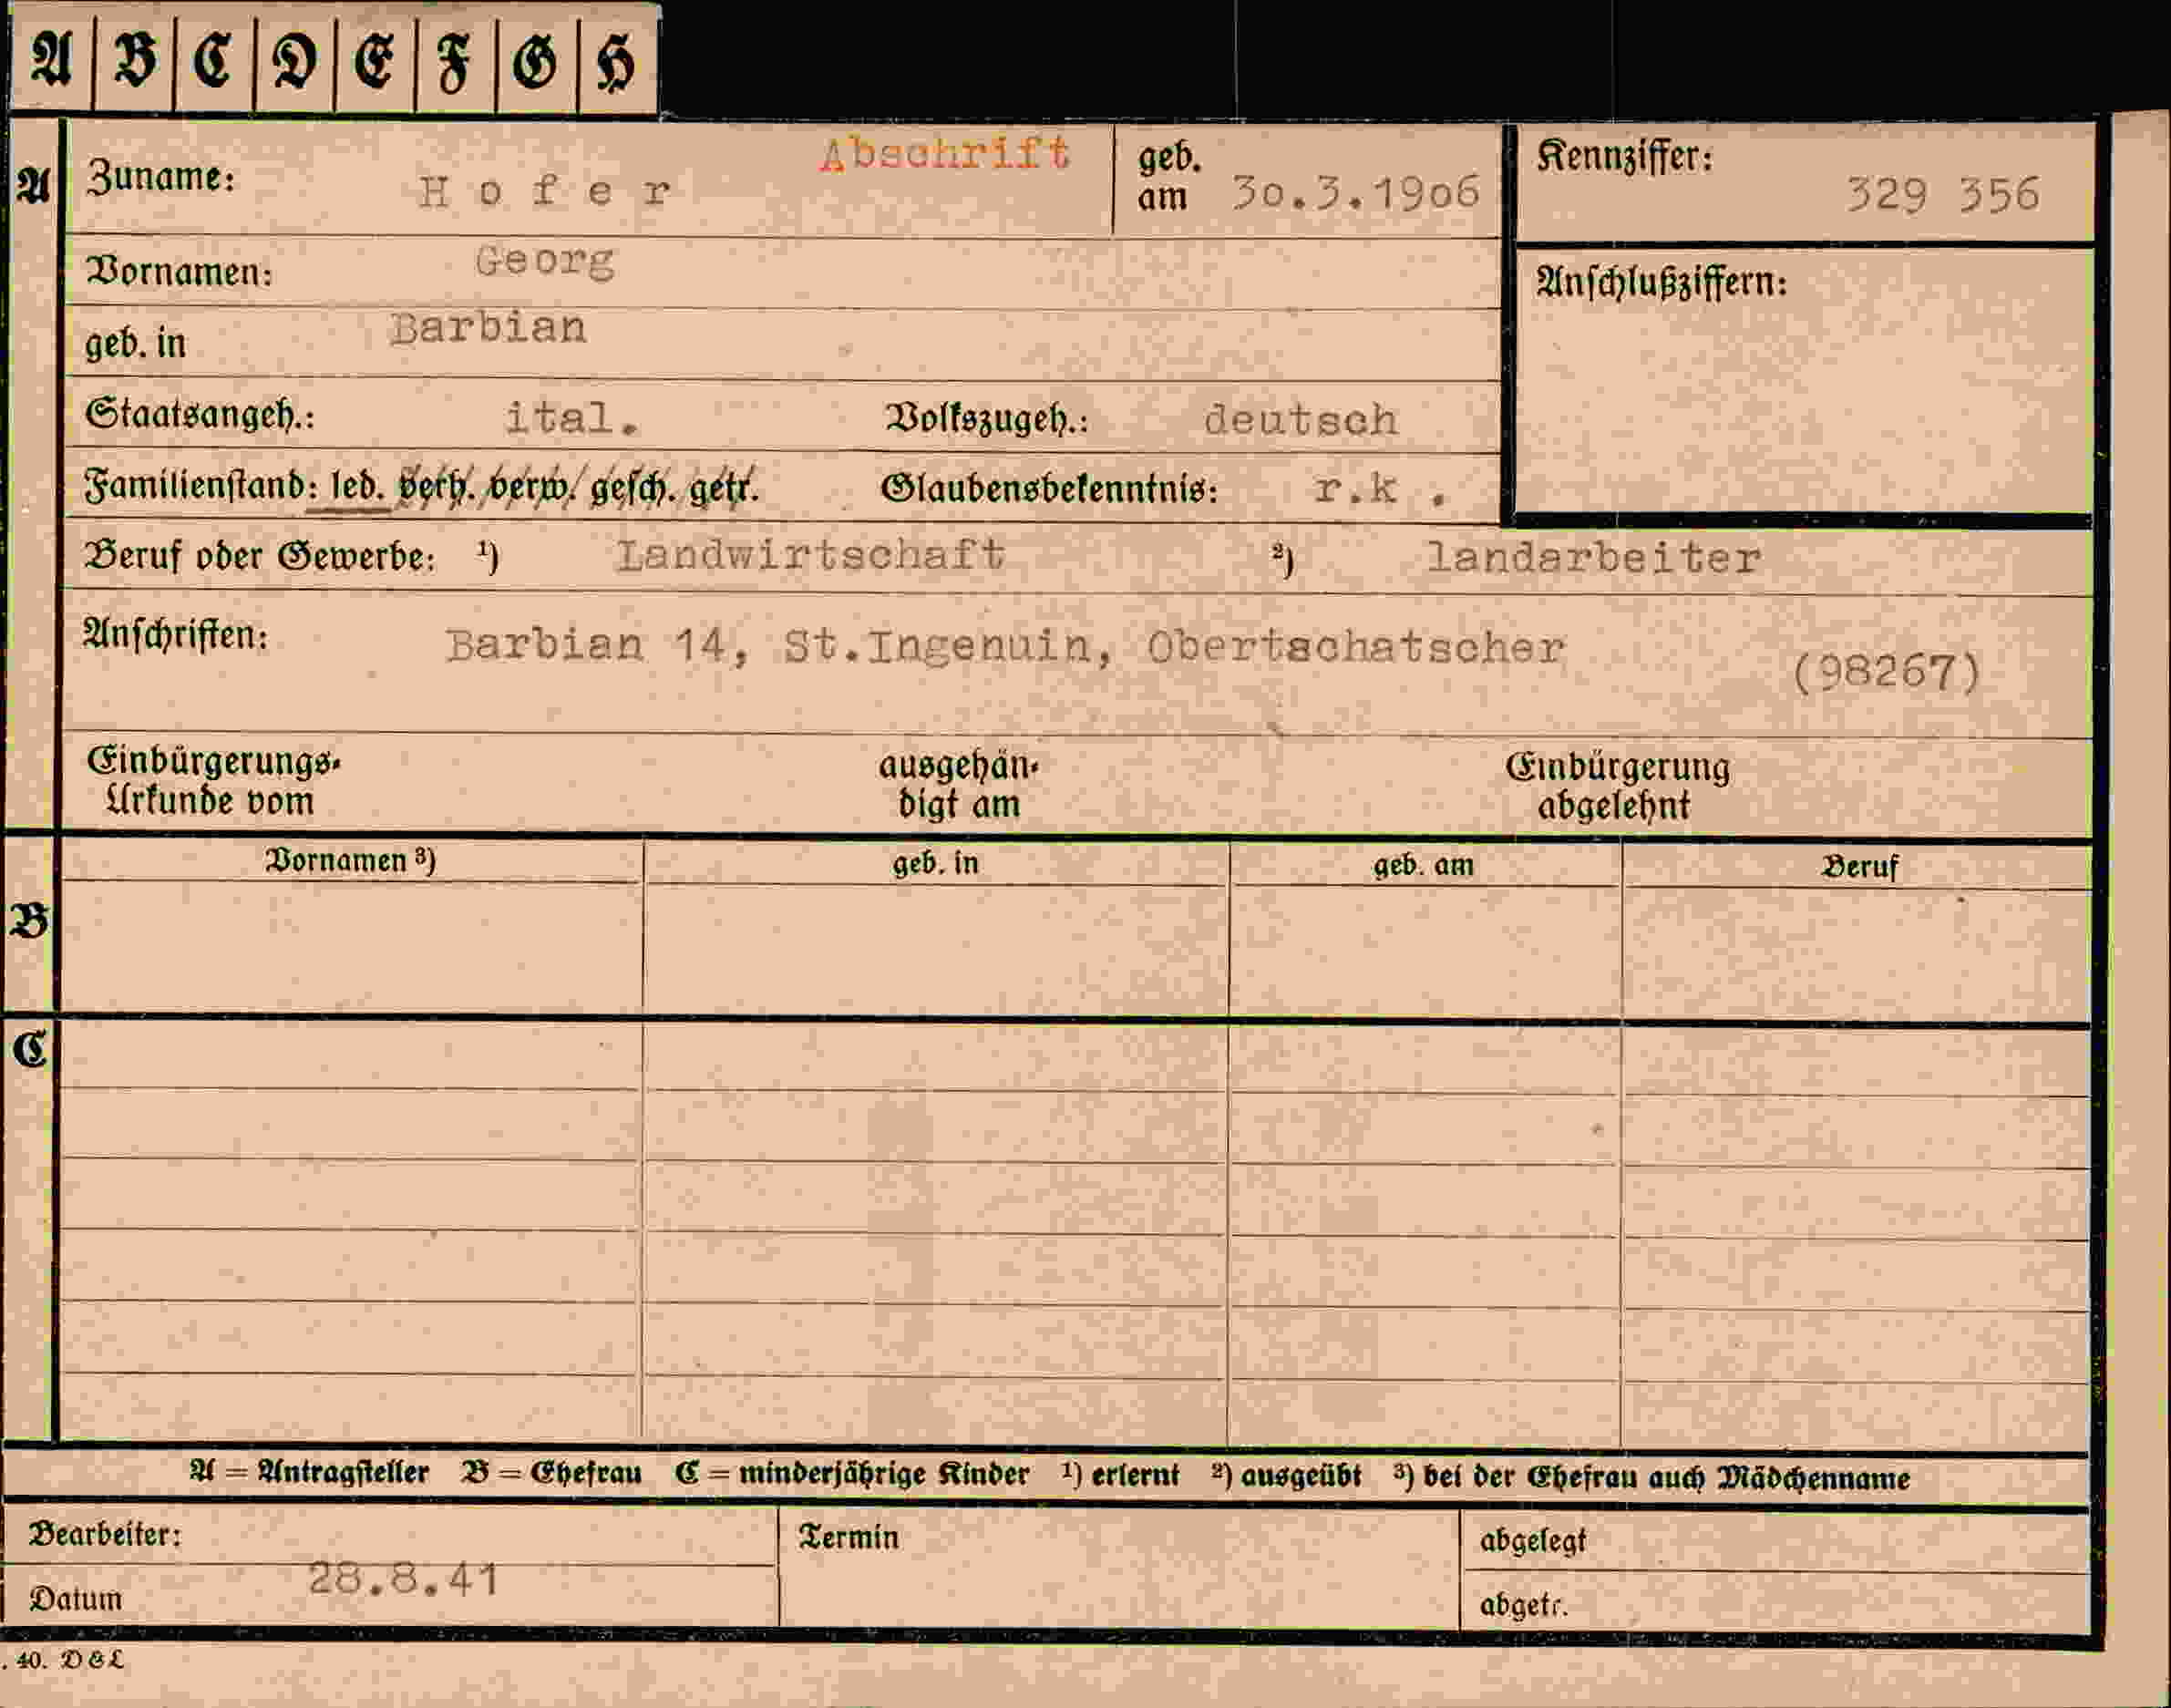 A B C D E F G H
A Zuname: Hofer Abschrift geb. am 30.3.1906 Kennziffer: 329 356
Vornamen: Georg Anschlußziffern:
geb. in Barbian
Staatsangeh.: ital. Volkszugeh.: deutsch
Familienstand: led. verh. verw. gesch. getr. Glaubensbekenntnis: r.k.
Beruf oder Gewerbe: ¹) Landwirtschaft ²) landarbeiter
Anschriften: Barbian 14, St.Ingenuin, Obertschatscher (98267)
Einbürgerungs- ausgehän- Einbürgerung
Urkunde vom digt am abgelehnt
Vornamen ³) geb. in geb. am Beruf
B
C
A = Antragsteller B = Ehefrau C = minderjährige Kinder ¹) erlernt ²) ausgeübt ³) bei der Ehefrau auch Mädchenname
Bearbeiter: Termin abgelegt
Datum 28.8.41 abgetr.
. 40. D&L